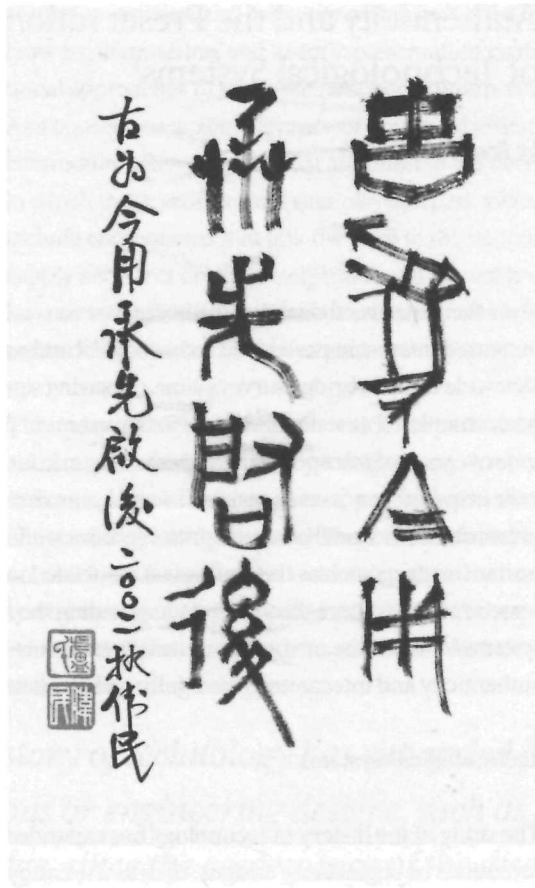 古爲今用
承先啟後
古为今用承先啟後二〇〇二秋伟民